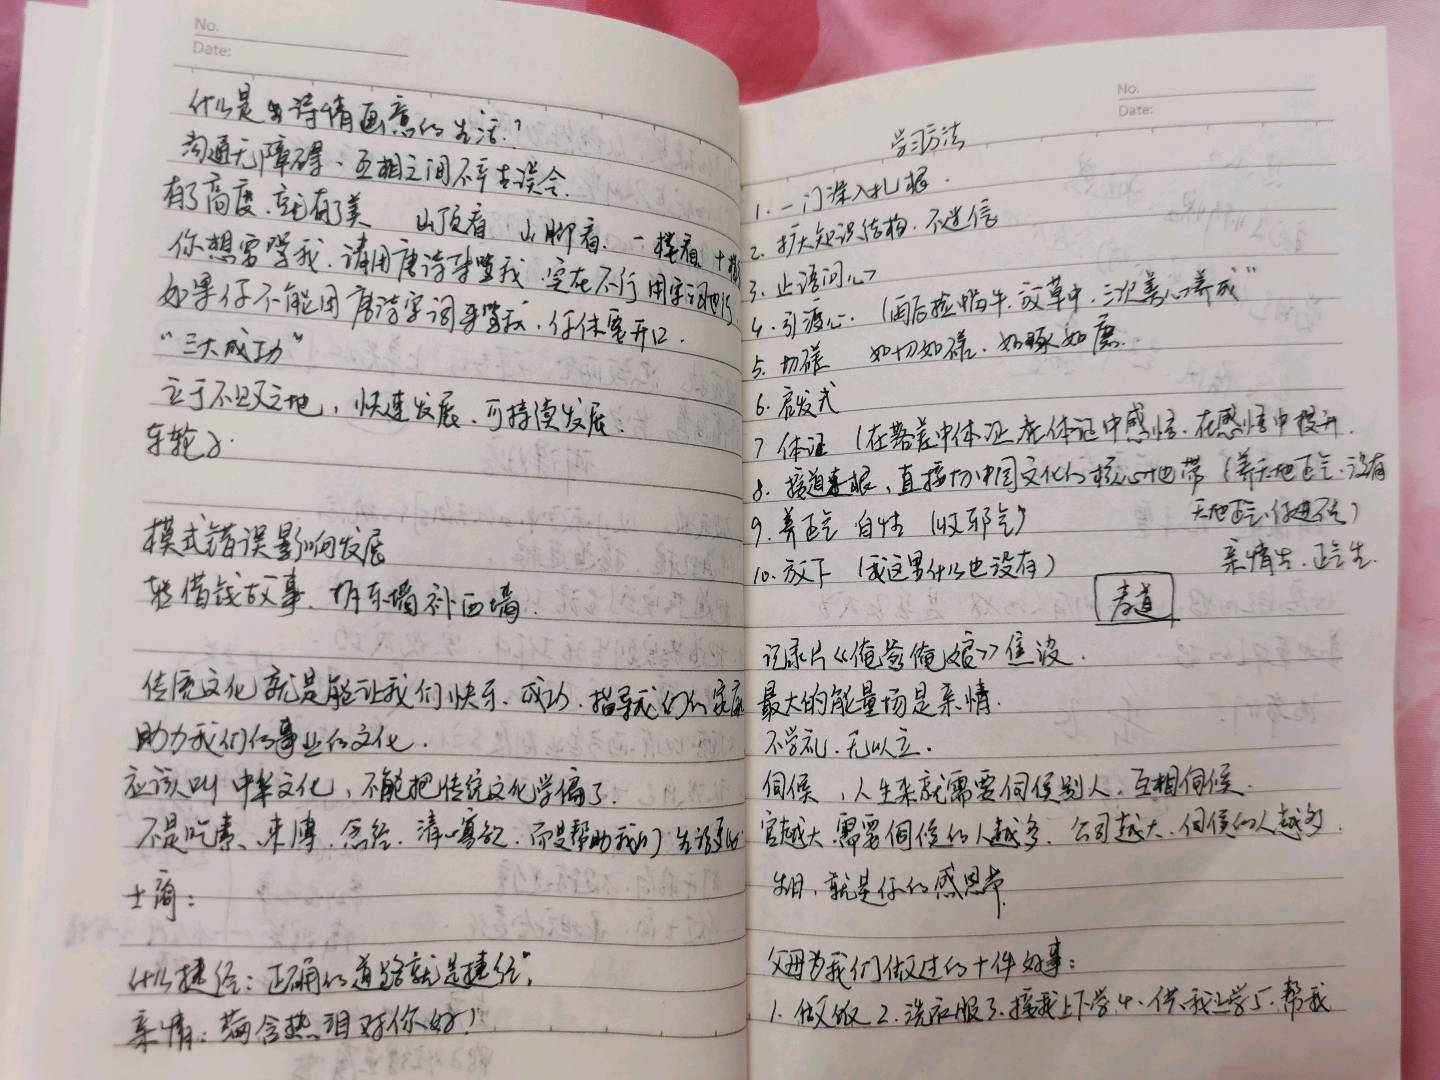 No.
Date:
什么是诗情画意的生活?
沟通无障碍、互相之间不产生误会.
有了高度.就有了美 山顶看 山脚看. 一楼看 十楼
你想要骂我.请用唐诗来骂我.实在不行用宋词也行
如果你不能用唐诗宋词来骂我.你休要开口.
"三大成功"
立于不败之地,快速发展.可持续发展.
车轮
模式错误影响发展
借钱故事.拆东墙补西墙.
传统文化就是能让我们快乐、成功.指导我们的家庭
助力我们的事业的文化.
应该叫中华文化,不能把传统文化学偏了.
不是吃素、来博.念经.清心寡欲.而是帮助我们生活更好
士商:
什么捷径:正确的道路就是捷径.
亲情:满含热泪对你好!
No.
Date:
学习方法
1. 一门深入扎根.
2. 扩大知识结构.不迷信
3. 止语问心
4. 引渡心. (雨后捡蜗牛.放草中.三次善心养成"
5. 切磋 如切如磋.如琢如磨.
6. 启发式
7 体证 (在落差中体证.在体证中感悟.在感悟中提升.
8. 接道  根,直接切中国文化的核心地带 (养天地正气.没有
天地正气.你进不去)
9. 养正气 自性 (收邪气)
亲情生.正气生.
10. 放下 (我这里什么也没有)
孝道
记录片《俺爹俺娘》焦波.
最大的能量场是亲情.
不学礼.无以立.
伺候,人生来就需要伺候别人.互相伺候.
官越大.需要伺候的人越多. 公司越大.伺候的人越多.
生日,就是你的感恩节
父母为我们做过的十件好事:
1. 做饭 2. 洗衣服 3. 接我上下学 4、供我上学 5、帮我